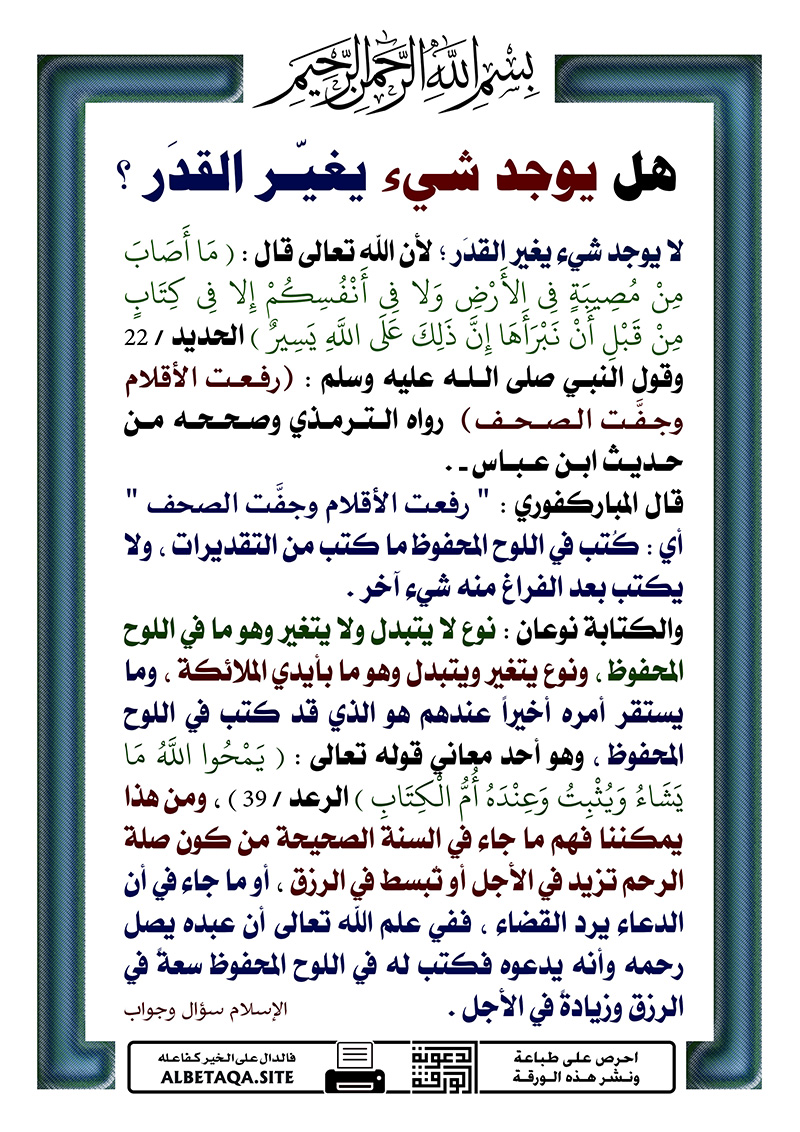 بِسْمِ اللَّهِ الرَّحْمَنِ الرَّحِيمِ
هل يوجد شيء يغيّر القدَر ؟
لا يوجد شيء يغير القدَر ؛ لأن الله تعالى قال : ( مَا أَصَابَ
مِنْ مُصِيبَةٍ فِي الأَرْضِ وَلا فِي أَنْفُسِكُمْ إِلا فِي كِتَابٍ
مِنْ قَبْلِ أَنْ نَبْرَأَهَا إِنَّ ذَلِكَ عَلَى اللَّهِ يَسِيرٌ ) الحديد / 22
وقول النبي صلى الله عليه وسلم : (رفعت الأقلام
وجفَّت الصحف) رواه الترمذي وصححه من
حديث ابن عباس ـ .
قال المباركفوري : " رفعت الأقلام وجفَّت الصحف "
أي : كُتب في اللوح المحفوظ ما كتب من التقديرات ، ولا
يكتب بعد الفراغ منه شيء آخر .
والكتابة نوعان : نوع لا يتبدل ولا يتغير وهو ما في اللوح
المحفوظ ، ونوع يتغير ويتبدل وهو ما بأيدي الملائكة ، وما
يستقر أمره أخيراً عندهم هو الذي قد كتب في اللوح
المحفوظ ، وهو أحد معاني قوله تعالى : ( يَمْحُوا اللَّهُ مَا
يَشَاءُ وَيُثْبِتُ وَعِنْدَهُ أُمُّ الْكِتَابِ ) الرعد / 39 ) ، ومن هذا
يمكننا فهم ما جاء في السنة الصحيحة من كون صلة
الرحم تزيد في الأجل أو تبسط في الرزق ، أو ما جاء في أن
الدعاء يرد القضاء ، ففي علم الله تعالى أن عبده يصل
رحمه وأنه يدعوه فكتب له في اللوح المحفوظ سعةً في
الرزق وزيادةً في الأجل .
الإسلام سؤال وجواب
احرص على طباعة
ونشر هذه الورقة
الورقة
الدعوية
فالدال على الخير كفاعله
ALBETAQA.SITE